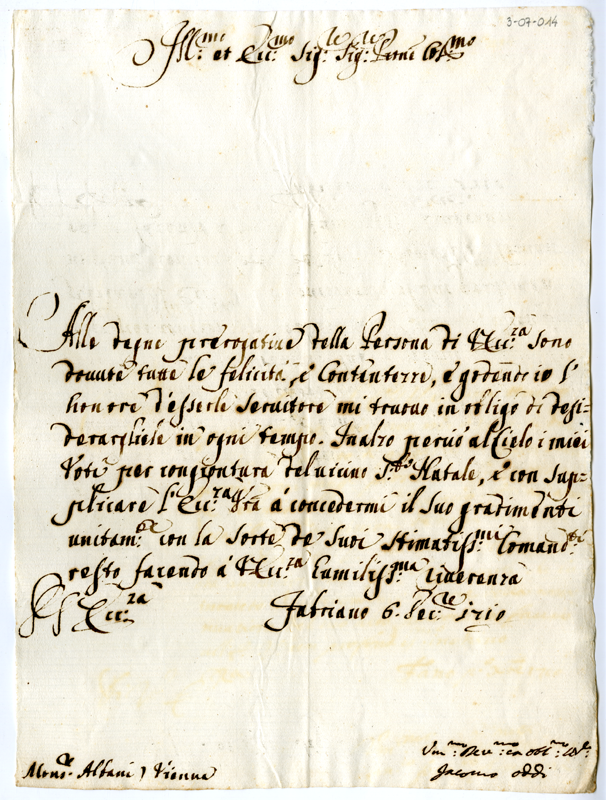 3-07-014
Ill.mo et Ecc.mo Sig.re Sig.re P.rone Col.mo
Alle degne prerogative della Persona di V. Ecc.za sono
dovute tutte le felicità, e Contentezze, e godendo io l'
honore d'esserle servitore mi truovo in obligo di desi-
derargliele in ogni tempo. Inalzo perciò al Cielo i miei
Voti per congiontura del vicino S.to Natale, e con sup-
plicare l'Ecc.za V.ra à concedermi il suo gradimento
unitam.te con la sorte de suoi stimatiss.mi Comand.ti
resto facendo à V. Ecc.za humiliss.ma riverenza
Di V. Ecc.za Fabriano 6. Dec.re 1710
Mons.r Albani, Vienna
Jacomo Oddi